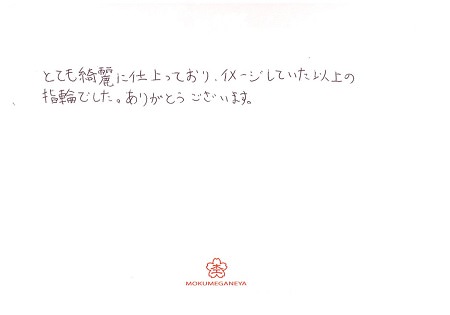 とても綺麗に仕上っており、イメージしていた以上の
指輪でした。ありがとうございます。
杢
MOKUMEGANEYA